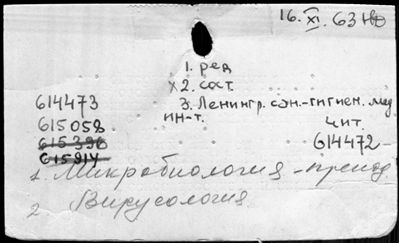 16. XI. 63
1. ред
2. сост.
614473
3. Ленингр. сан.-гигиен. мед
615058
ин-т.
чит.
615396
614472
615914
1. Микробиология - препод.
2 Вирусология